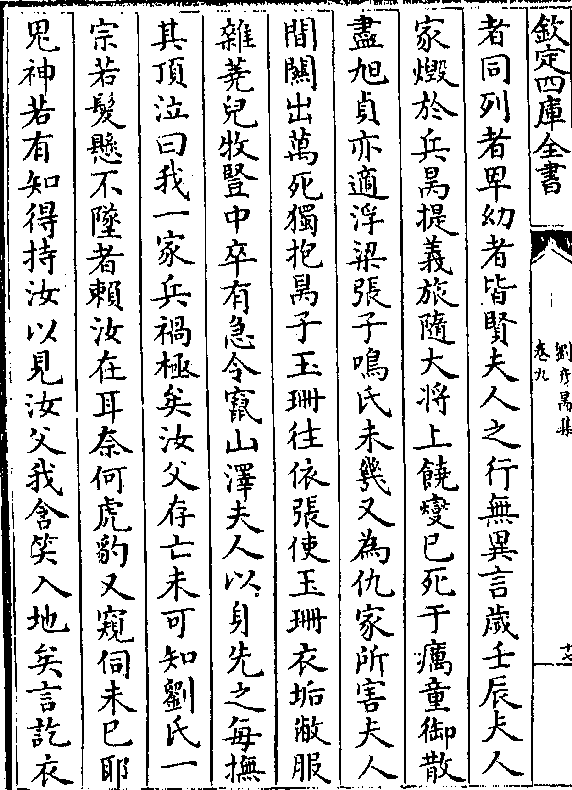 欽定四庫全書
劉彦昺集
卷九
十七
者同列者卑幼者皆賢夫人之行無異言歲壬辰夫人
家燬於兵昺提義旅隨大將上饒燮已死于癘童御散
盡旭貞亦適浮梁張子鳴氏未幾又為仇家所害夫人
間關出萬死獨抱昺子玉珊往依張使玉珊衣垢敝服
雜蕘兒牧豎中卒有急令竄山澤夫人以身先之每撫
其頂泣曰我一家兵禍極矣汝父存亡未可知劉氏一
宗若髮懸不墜者賴汝在耳奈何虎豹又窺伺未已耶
鬼神若有知得持汝以見汝父我含笑入地矣言訖衣